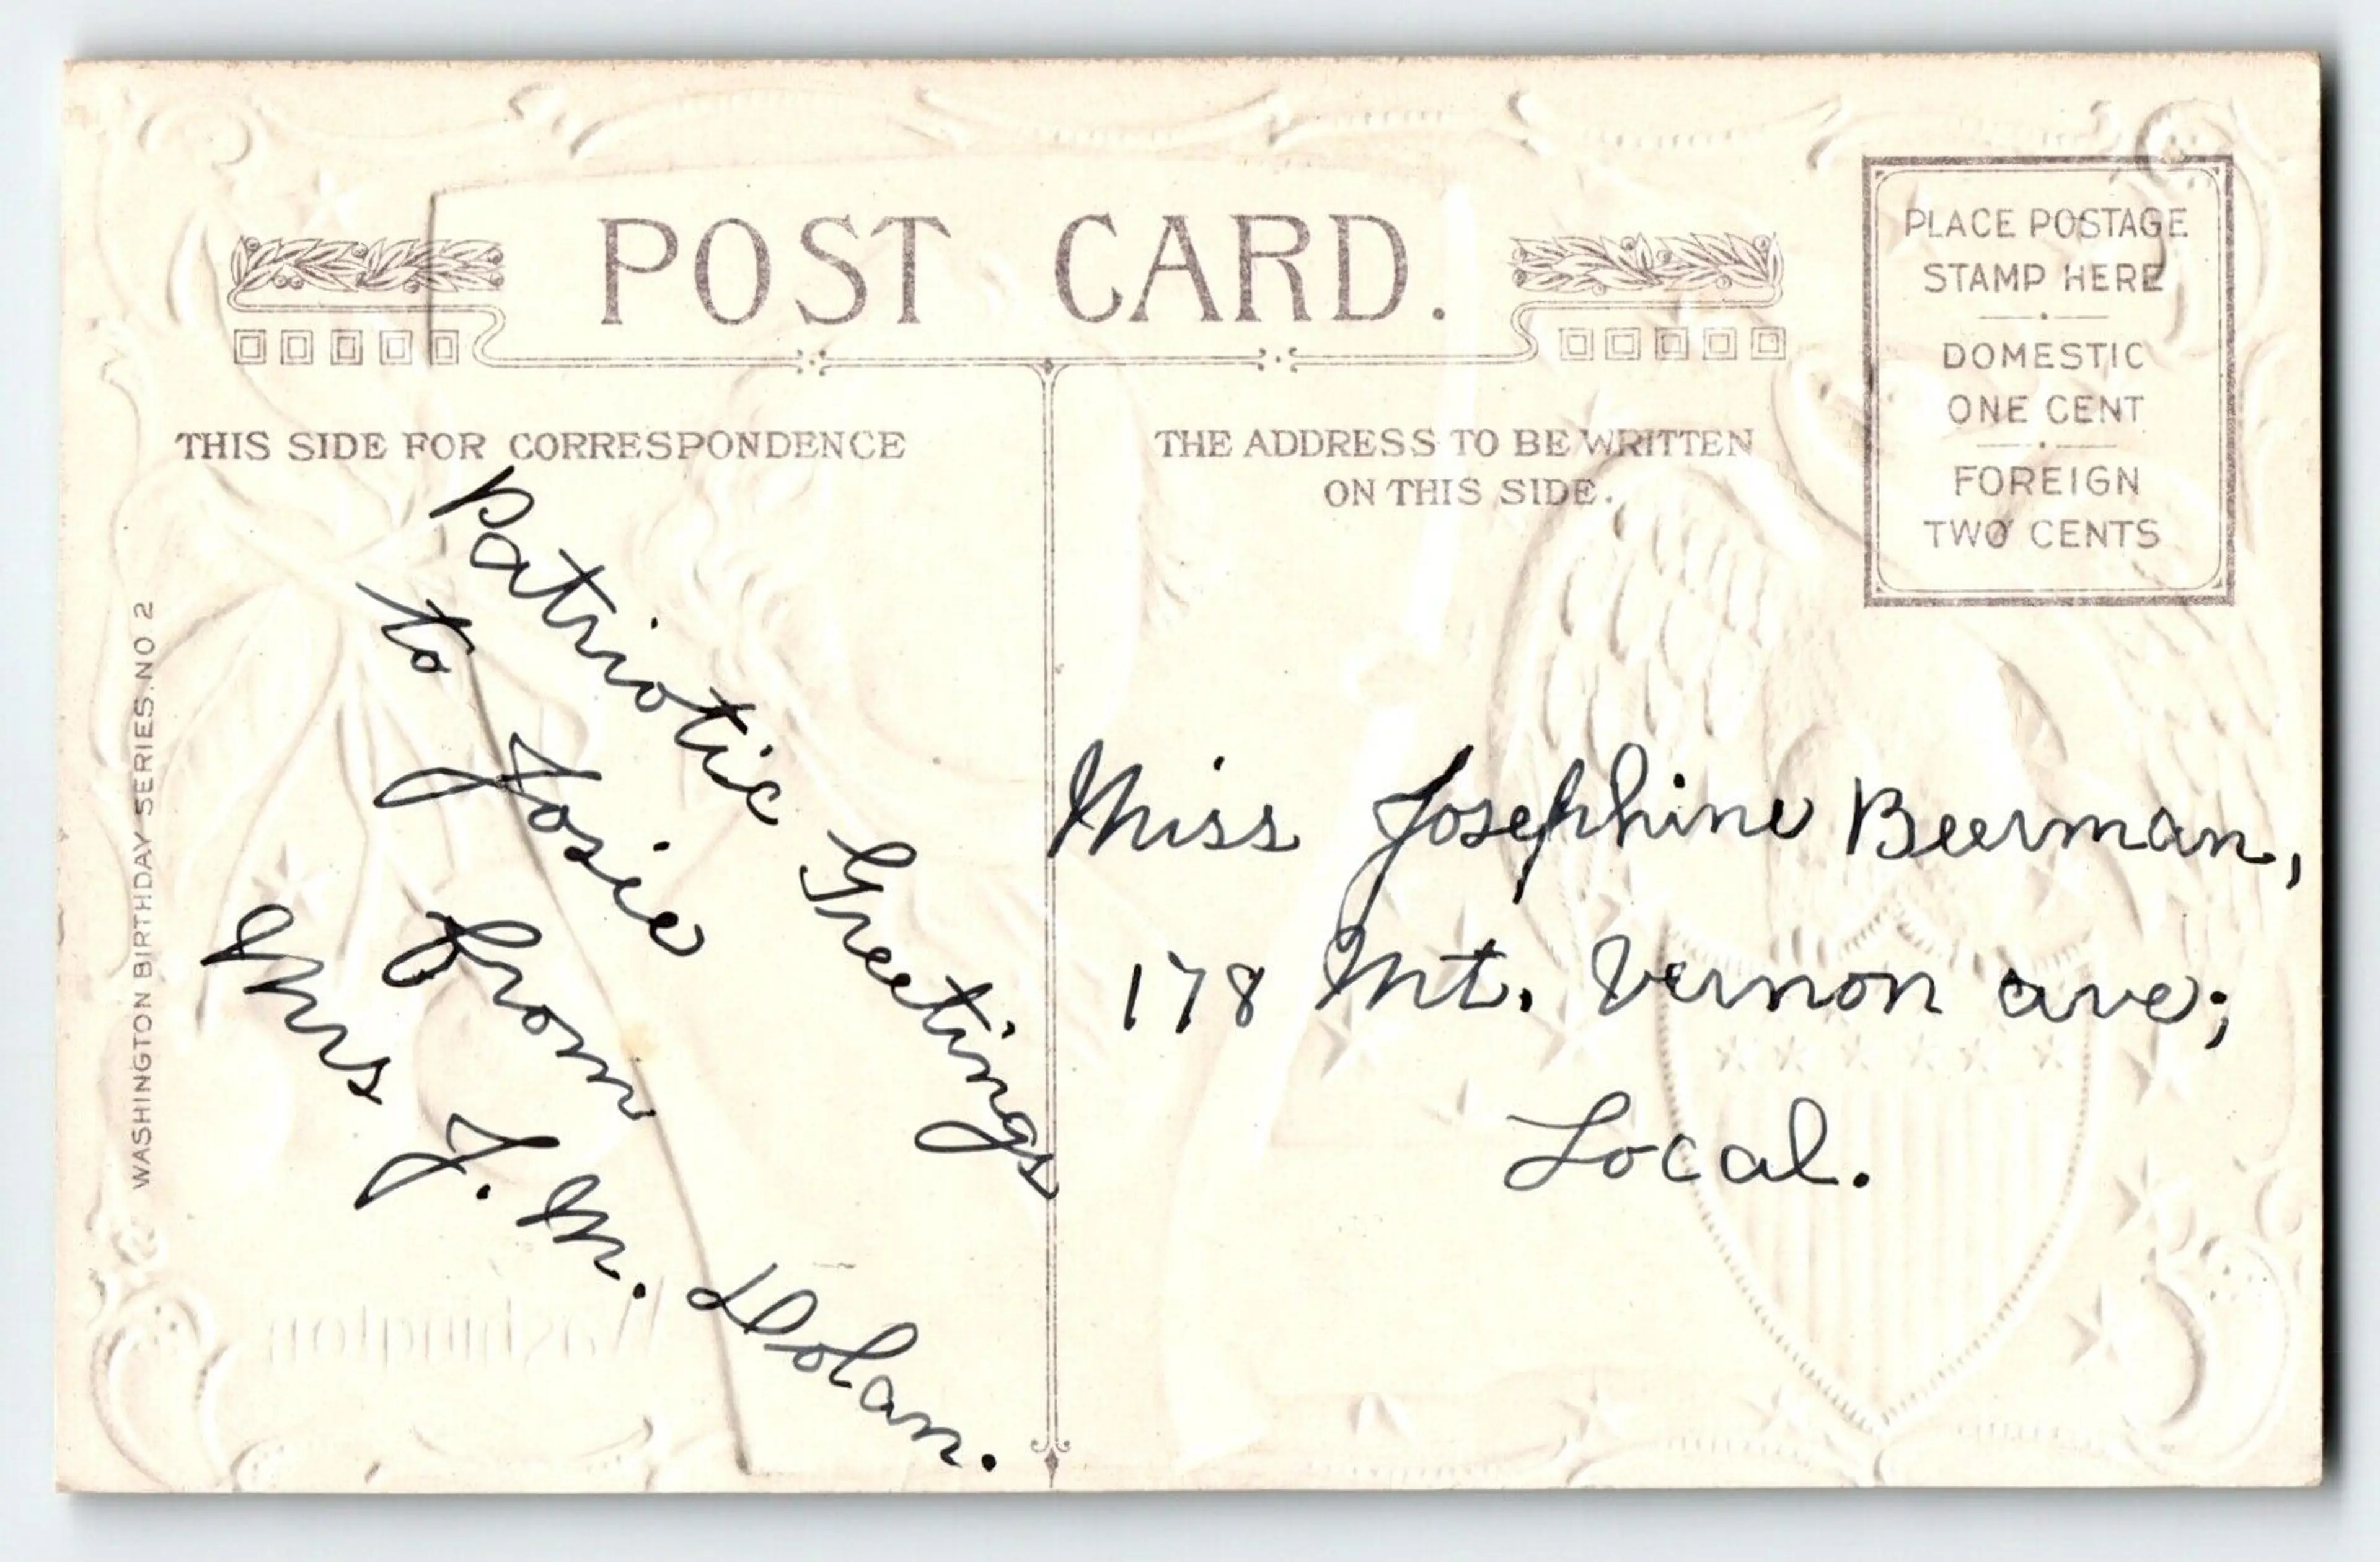 POST CARD.
PLACE POSTAGE
STAMP HERE
DOMESTIC
ONE CENT
FOREIGN
TWO CENTS
THIS SIDE FOR CORRESPONDENCE
THE ADDRESS TO BE WRITTEN
ON THIS SIDE.
WASHINGTON BIRTHDAY SERIES. NO 2
Patriotic Greetings
to Josie
from
Mrs J. M. Dolan.
Miss Josephine Beerman,
178 Mt. Vernon ave;
Local.
Washington